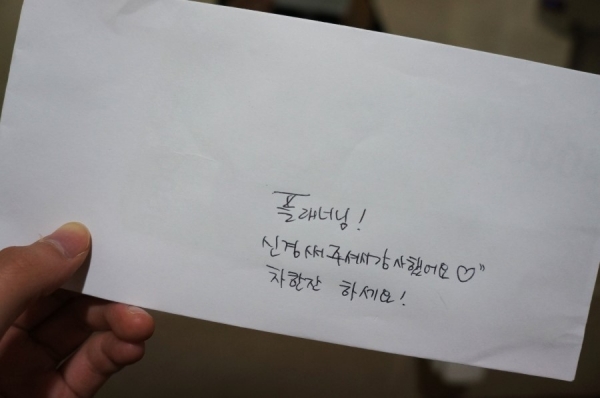 플래너님!
신경써주셔서감사했어요♡"
차한잔 하세요!